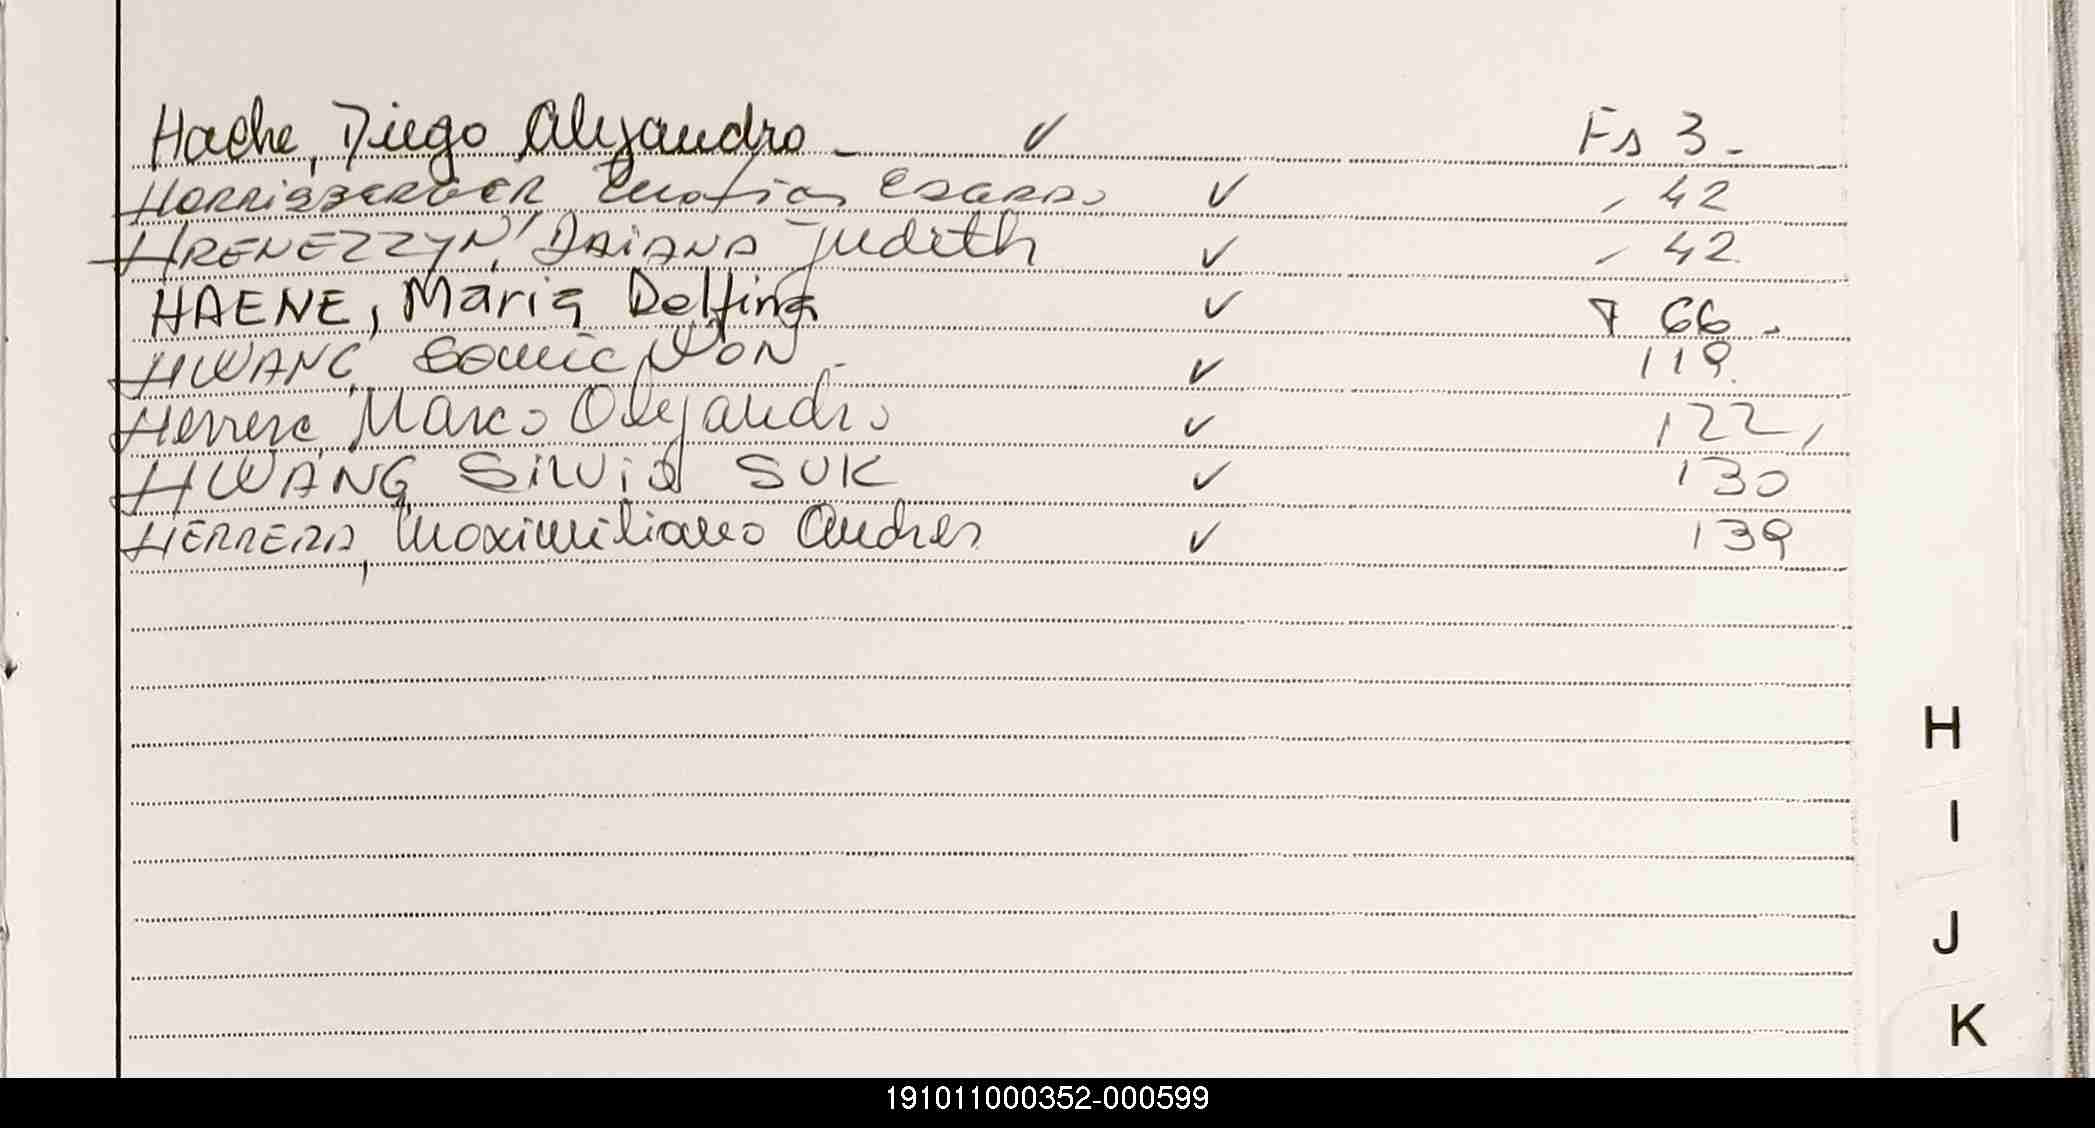 Hache, Diego Alejandro - ✓ Fs 3.-
HORRISBERGER Matias Esardo ✓ , 42
HRENEZZYN, DAIANA Judith ✓ - 42.
HAENE, Maria Delfina ✓ 66.-
HWANG WON - ✓ 119.
Herrera Marco Alejandro ✓ 122,
HWANG SiLVia SUK ✓ 130
HERRERA, Maximiliano Andres ✓ 139
H
I
J
K
191011000352-000599